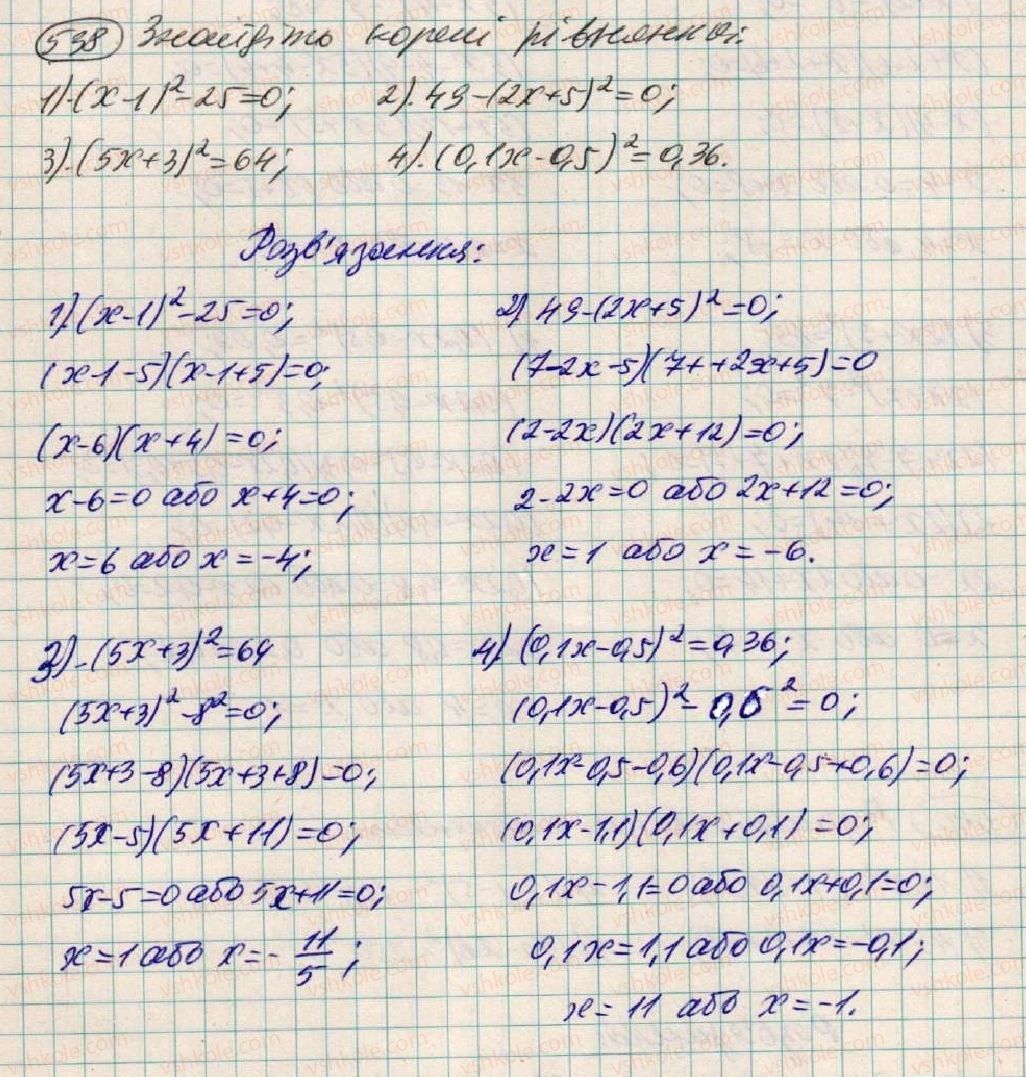 538 Знайдіть корені рівняння:
1).(x-1)²-25=0; 2).49-(2x+5)²=0;
3).(5x+3)²=64; 4).(0,1x-0,5)²=0,36.
Розв'язання:
1)(x-1)²-25=0;
(x-1-5)(x-1+5)=0;
(x-6)(x+4)=0;
x-6=0 або x+4=0;
x=6 або x=-4;
2) 49-(2x+5)²=0;
(7-2x-5)(7++2x+5)=0
(2-2x)(2x+12)=0;
2-2x=0 або 2x+12=0;
x=1 або x=-6.
3).(5x+3)²=64
(5x+3)²-8²=0;
(5x+3-8)(5x+3+8)=0;
(5x-5)(5x+11)=0;
5x-5=0 або 5x+11=0;
x=1 або x=-11/5;
4) (0,1x-0,5)²=0,36;
(0,1x-0,5)²-0,6²=0;
(0,1x-0,5-0,6)(0,1x-0,5+0,6)=0;
(0,1x-1,1)(0,1x+0,1)=0;
0,1x-1,1=0 або 0,1x+0,1=0;
0,1x=1,1 або 0,1x=-0,1;
x=11 або x=-1.
vshkole.com